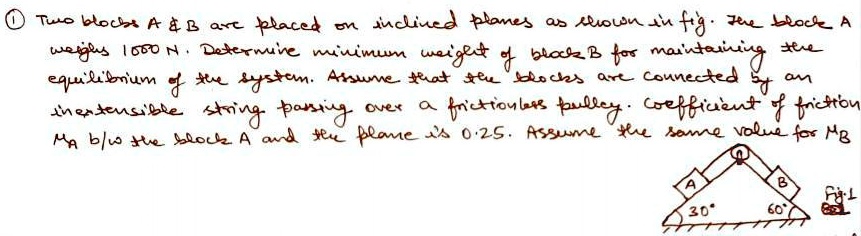 ① Two blocks A & B are placed on inclined planes as shown in fig. The block A
weighs 1000 N. Determine minimum weight of block B for maintaining the
equilibrium of the system. Assume that the blocks are connected by an
inextensible string passing over a frictionless pulley. Coefficient of friction
μA b/w the block A and the plane is 0.25. Assume the same value for μB
A
B
30°
60°
Fig.1